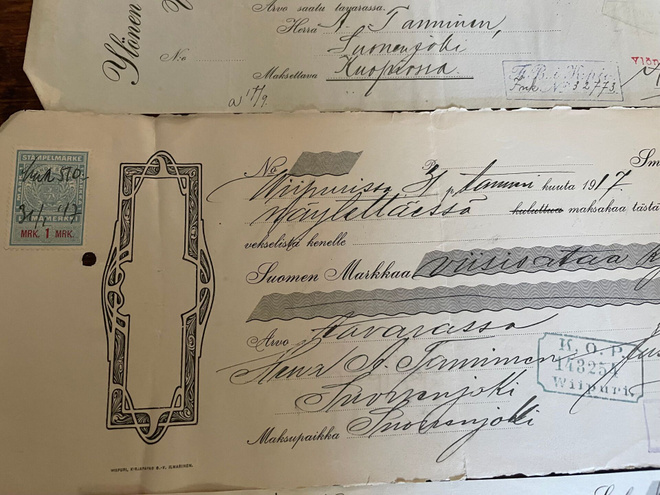 Ylönen
Arvo saatu tavarassa.
Herra A. Tanninen,
Suonenjoki
N:o
Maksettava Kuopiossa
F.B. i Kopio
Fnk. No 32,773.
Ylön
a 17/9.
STÄMPELMARKE
Smk 510.-
31/1 '17
MRK. 1 MRK.
No
P:
Sm
Wiipurissa 31 p. tammi kuuta 1917.
näytettäessä kuluttua maksahaa tästä
vekselistä kenelle
Suomen Markkaa viisisataa
Arvo tavarassa
Herra A. Tanninen
Suonenjoki
K. O. P.
148251
Wiipuri.
Maksupaikka Suonenjoki